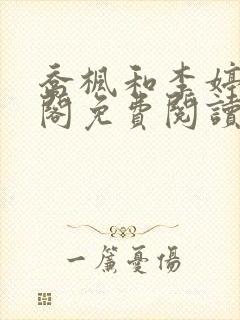 喬楓和李婷
閣免費閱讀
一簾憂傷